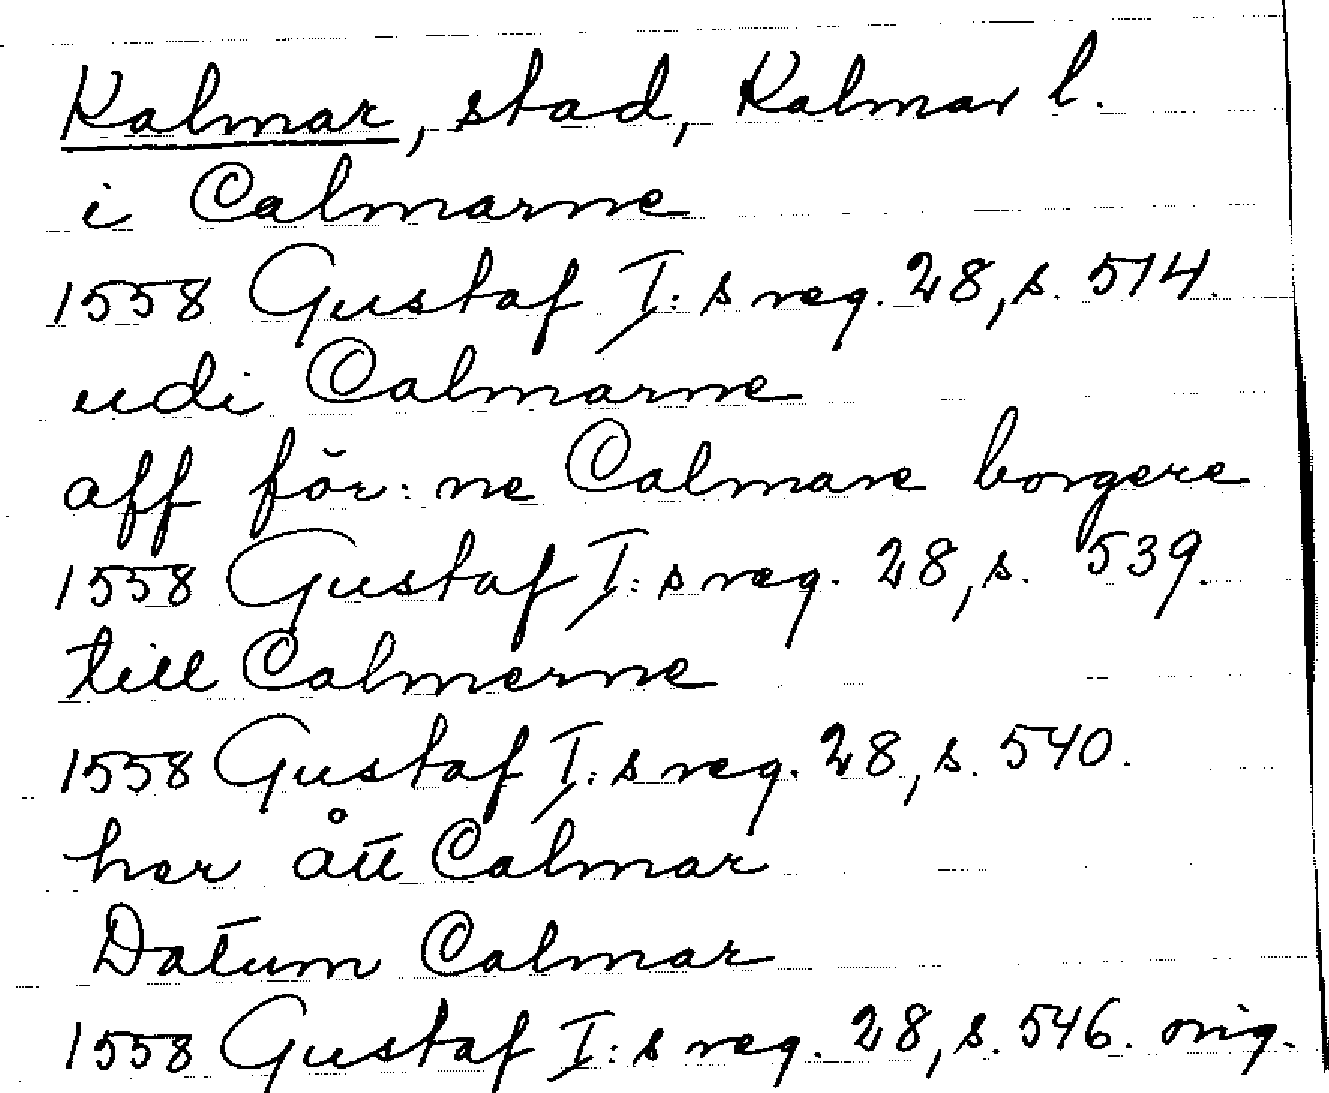 Kalmar, stad, Kalmar l.
i Calmarne
1558 Gustaf I:s reg. 28, s. 514.
udi Calmarne
aff för:ne Calmare borgere
1558 Gustaf I:s reg. 28, s. 539.
till Calmerne
1558 Gustaf I:s reg. 28, s. 540.
her ått Calmar
Datum Calmar
1558 Gustaf I:s reg. 28, s. 546. orig.